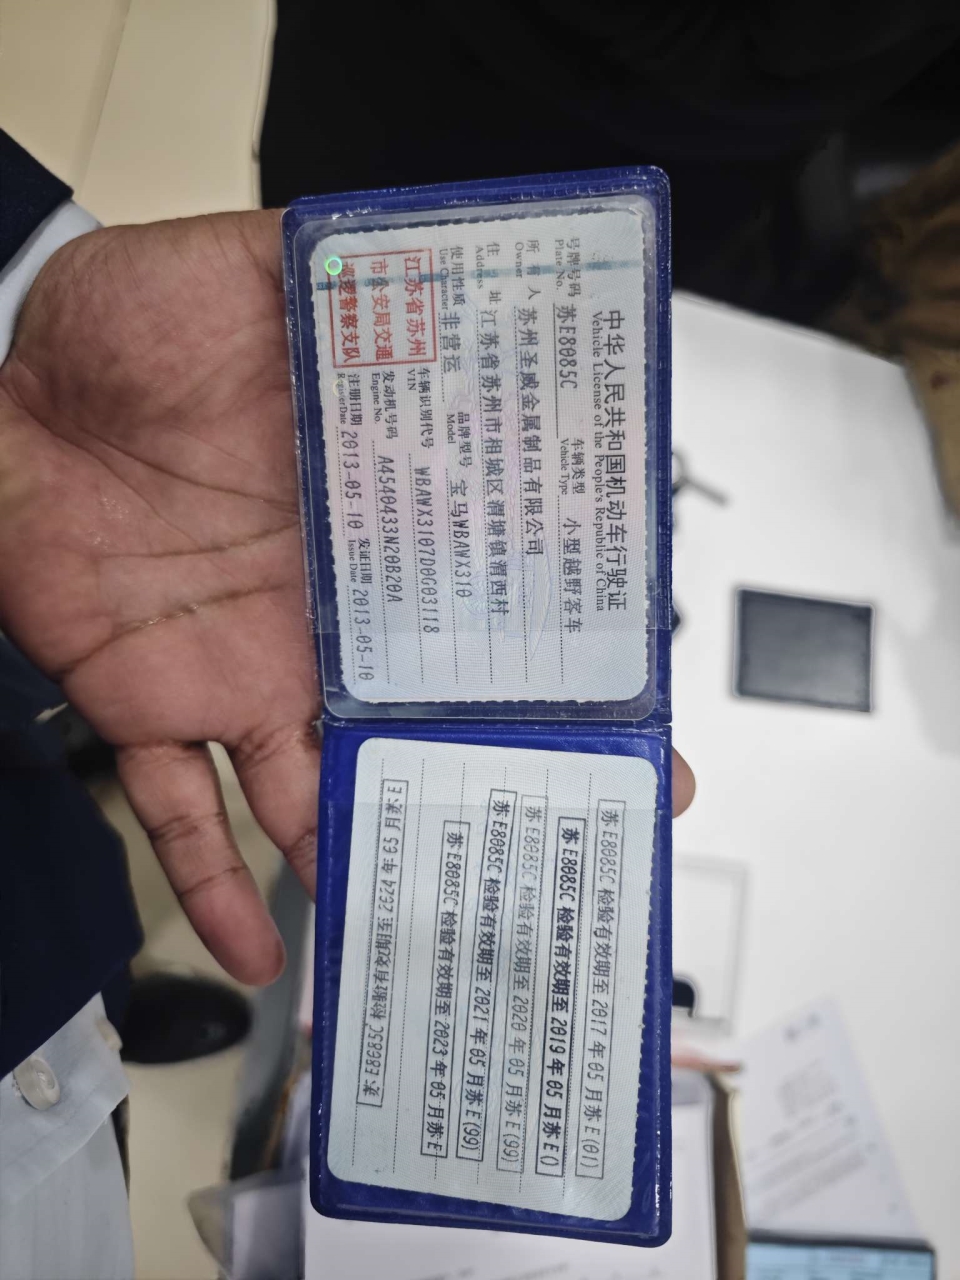 中华人民共和国机动车行驶证
Vehicle License of the People's Republic of China
号牌号码 苏E8085C 车辆类型 小型越野客车
Plate No. Vehicle Type
所有人 苏州圣威金属制品有限公司
Owner
住址 江苏省苏州市相城区渭塘镇渭西村
Address
使用性质 非营运 品牌型号 宝马WBAWX310
Use Character Model
江苏省苏州
市公安局交通
巡逻警察支队
车辆识别代号 WBAWX3107D0G03118
VIN
发动机号码 A4540433N20B20A
Engine No.
注册日期 2013-05-10 发证日期 2013-05-10
Register Date Issue Date
苏E8085C 检验有效期至 2017 年 05 月苏E(01)
苏E8085C 检验有效期至 2019 年 05 月苏E()
苏E8085C 检验有效期至 2020 年 05 月苏E(99)
苏E8085C 检验有效期至 2021 年 05 月苏E(99)
苏E8085C 检验有效期至 2023 年 05 月苏E
苏E8085C 检验有效期至 2024 年 05 月苏E